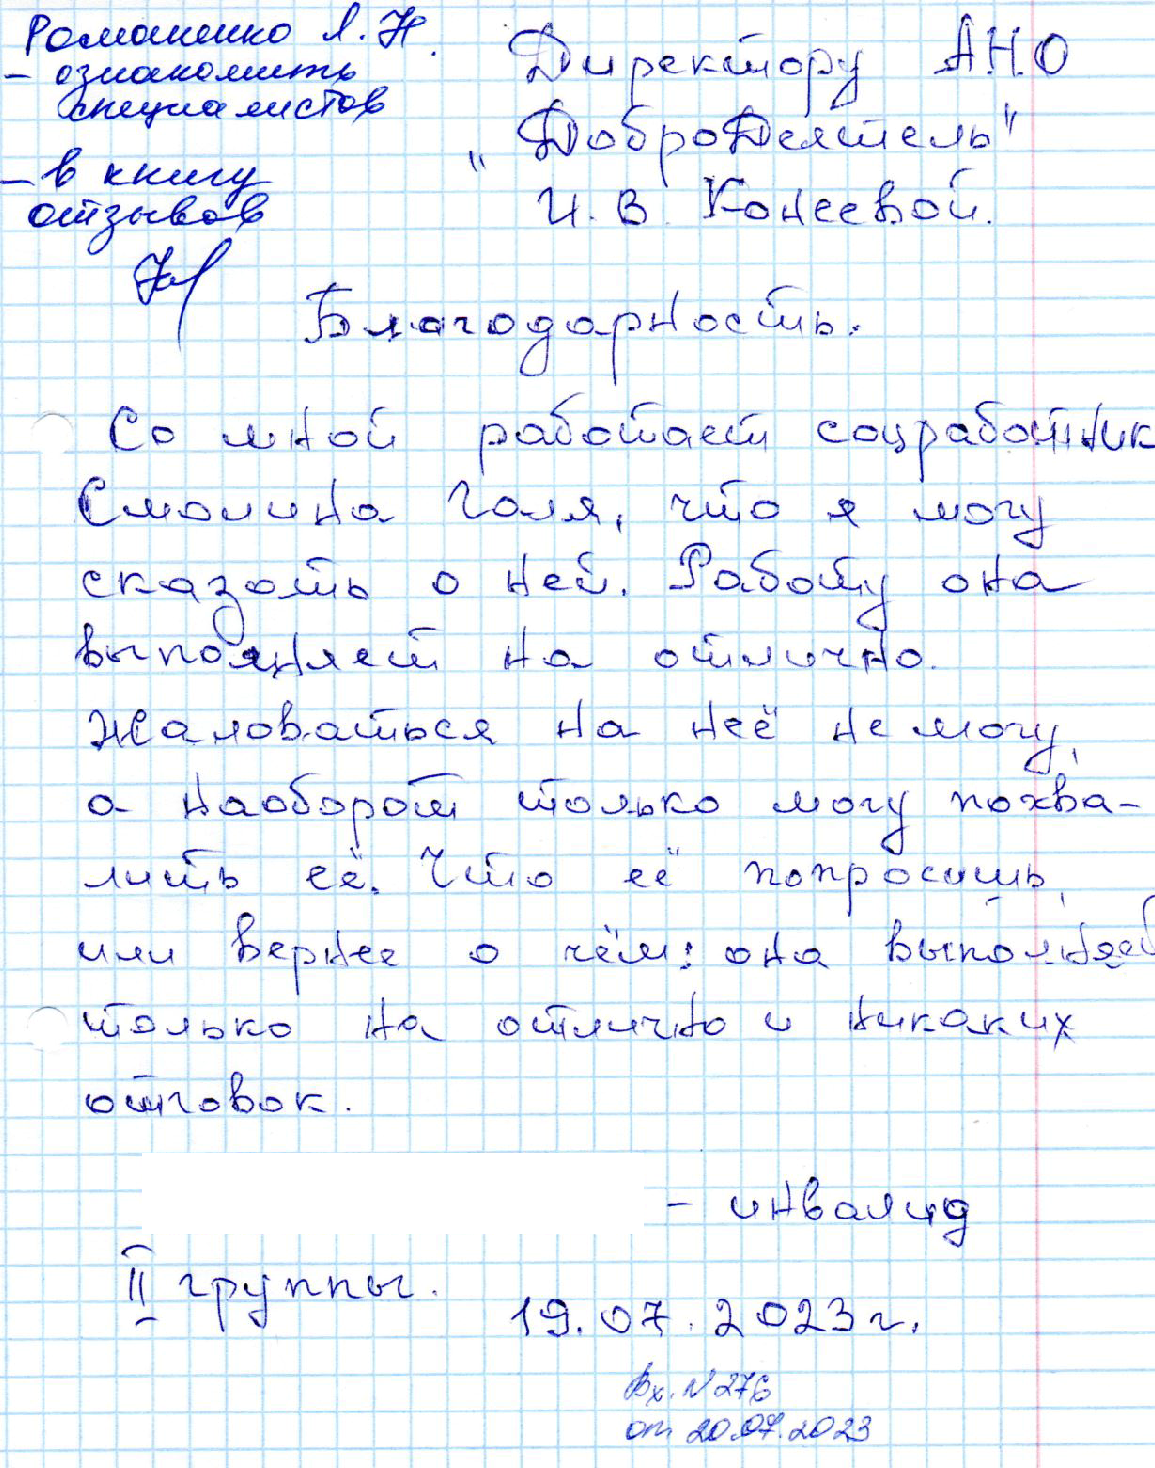 Романенко Л.Н.
- ознакомить
специалистов
- в книгу
отзывов
Директору АНО
"ДоброДеятель"
И.В. Конеевой.
Благодарность.
Со мной работает соцработник
Смолина Галя, что я могу
сказать о ней. Работу она
выполняет на отлично.
Жаловаться на неё не могу,
а наоборот только могу похва-
лить её. Что её попросишь,
или вернее о чём: она выполняет
только на отлично и никаких
отговок.
- инвалид
II группы.
19.07.2023г.
Вх. N 276
от 20.07.2023